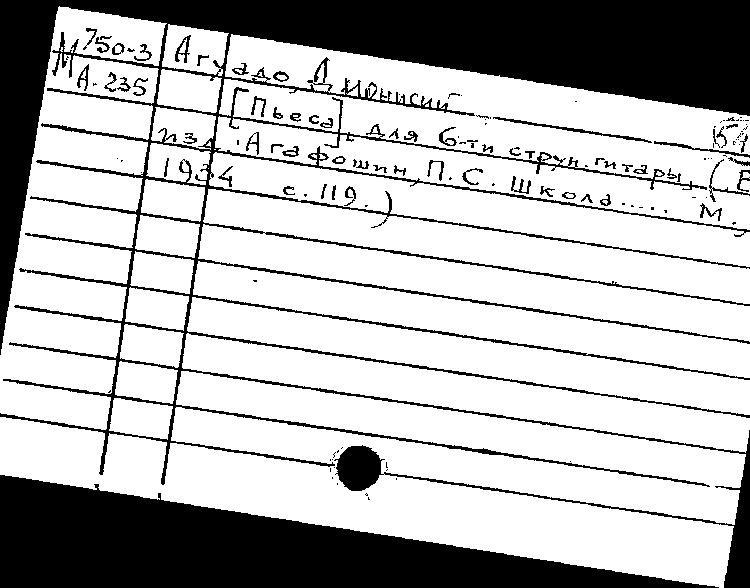 М 750-3 Агуадо, Дионисий
А-235
[Пьеса], для 6-ти струн. гитары, (В
изд.: Агафошин, П.С. Школа..... М.,
1934 с. 119.)